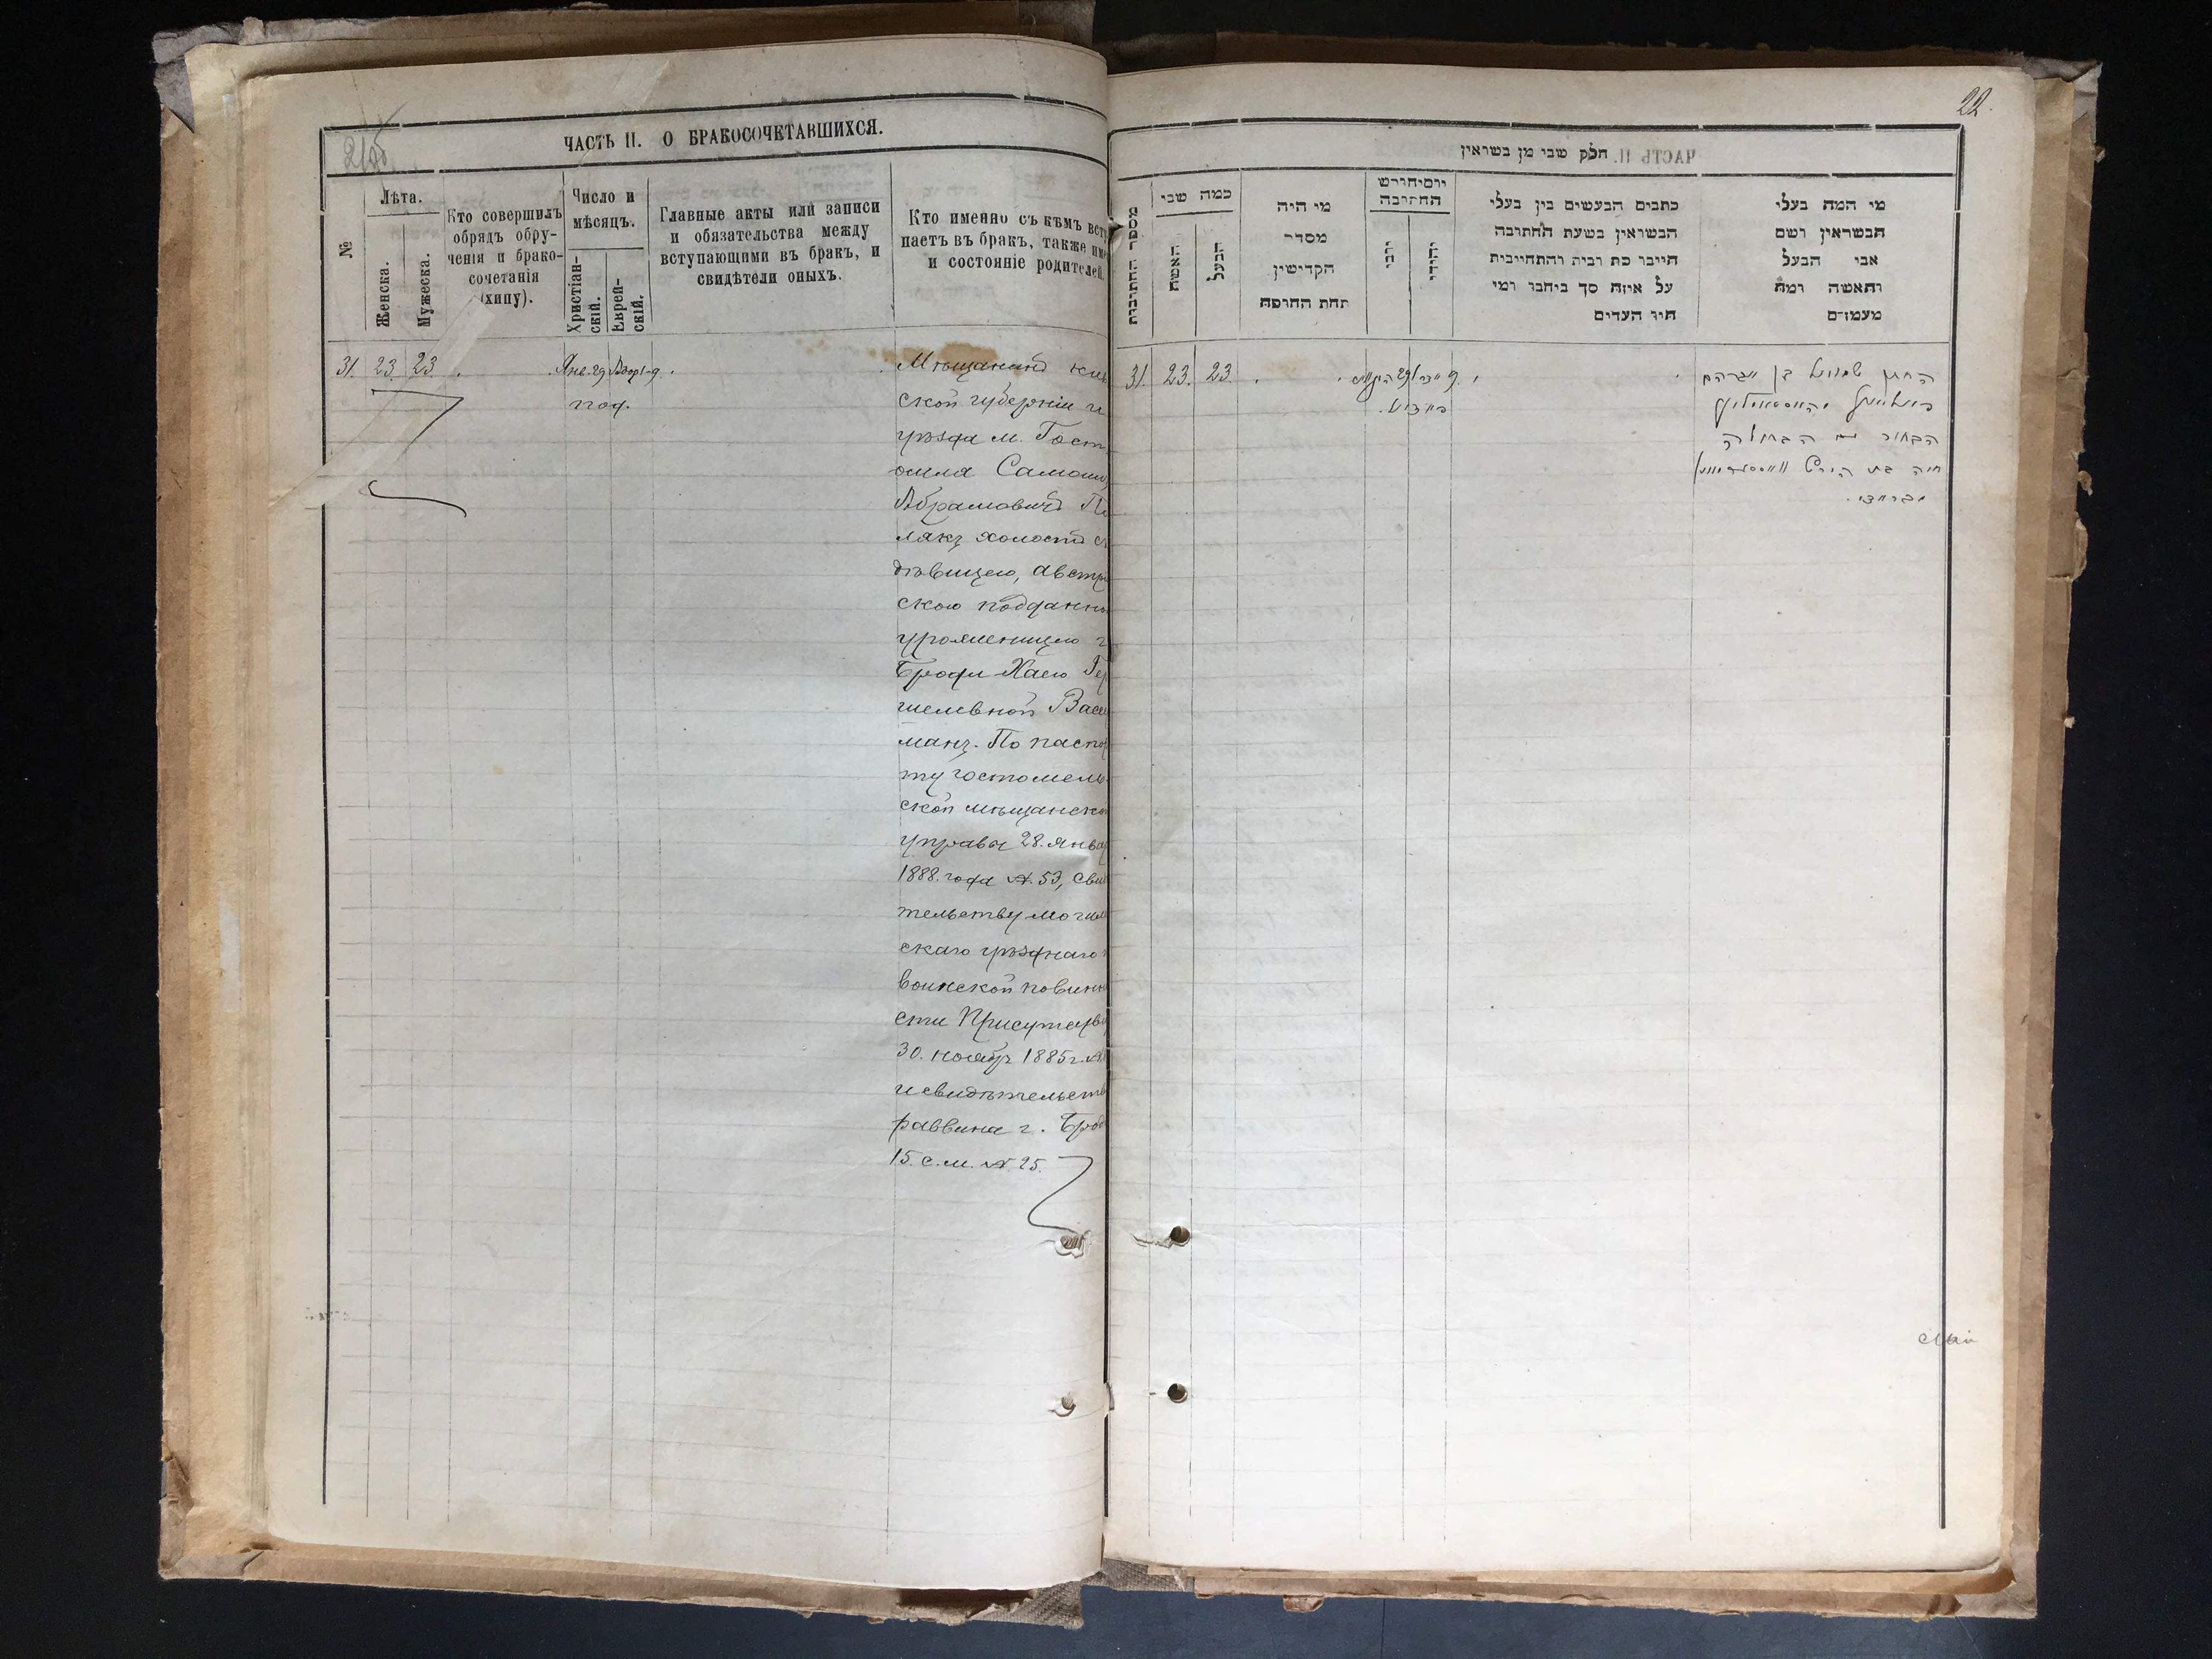 ЧАСТЬ II. О БРАКОСОЧЕТАВШИХСЯ.
№
Лѣта.
Женска.
Мужеска.
Кто совершилъ
обрядъ обру-
ченія и брако-
сочетанія
(хипу).
Число и
мѣсяцъ.
Христіан-
скій.
Еврей-
скій.
Главные акты или записи
и обязательства между
вступающими въ бракъ, и
свидѣтели оныхъ.
Кто именно съ кѣмъ всту
паетъ въ бракъ, также име
и состояніе родителей.
31. 23. 23.
Янв. 29
Мѣщанинъ кіев
ской губерніи и
уѣзда м. Гост
омля Самоил
Абрамовичъ По
лякъ холостъ съ
дѣвицею, австрій
скою подданною
уроженицею г
Броды Хаею Гер
шелевной Васер
манъ. По паспор
ту гостомель
ской мѣщанской
управы 28. январ
1888. года №. 53, свидѣ
тельству
скаго уѣзднаго
воинской повинно
сти Присутств
30. ноябр 1885 г. №
и свидѣтельств
раввина г. Брод
15. с. м. №. 25.
22.
חלק שני מן בשואין
מספר החתונות
כמה שני
האשה
הבעל
מי היה
מסדר
הקדישין
תחת החופה
יום וחורש
החתונה
נוצרי
יהודי
כתבים הנעשים בין בעלי
הנשואין בשעת החתונה
חייבו כת רבית והתחייבות
על איזה סך ביחבו ומי
היו העדים
מי המה בעלי
הנשואין ושם
אבי הבעל
והאשה ומה
מעמדם
31. 23. 23.
החתן שמואל בן אברהם
הבחור עם הבתולה
חיה בת הירש וואססערמאן
מבראדי.